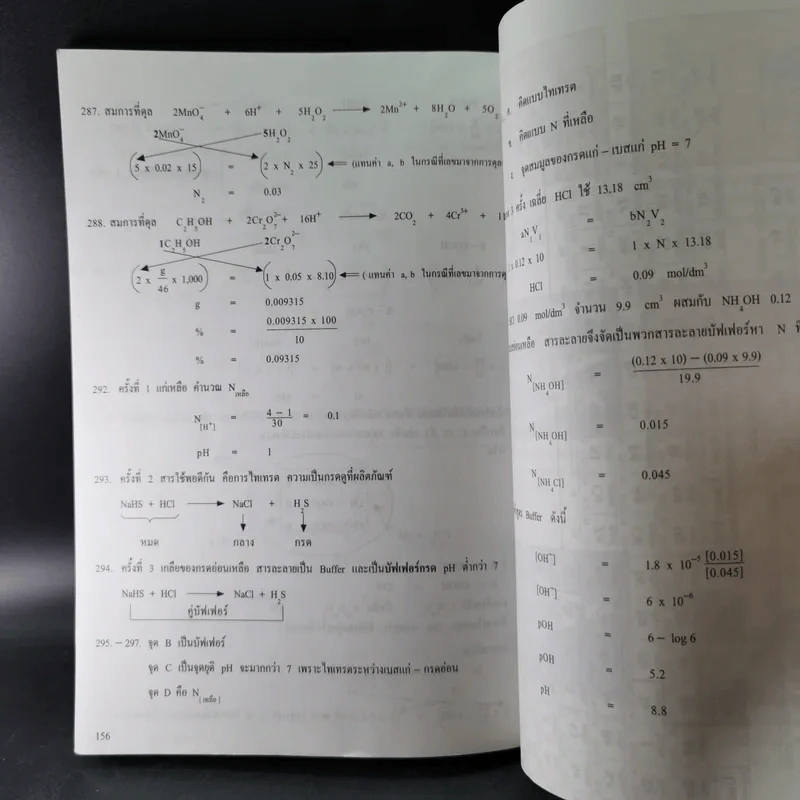 287. สมการที่ดุล 2MnO₄⁻ + 6H⁺ + 5H₂O₂ ⟶ 2Mn²⁺ + 8H₂O + 5O₂
2MnO₄⁻ 5H₂O₂
(5 x 0.02 x 15) = (2 x N₂ x 25) ⟸ (แทนค่า a, b ในกรณีที่เลขมาจากการดุล
N₂ = 0.03
288. สมการที่ดุล C₂H₅OH + 2Cr₂O₇²⁻ + 16H⁺ ⟶ 2CO₂ + 4Cr³⁺ + 1
1C₂H₅OH 2Cr₂O₇²⁻
(2 x g/46 x 1,000) = (1 x 0.05 x 8.10) ⟸ ( แทนค่า a, b ในกรณีที่เลขมาจากการดุ
g = 0.009315
% = 0.009315 x 100 / 10
% = 0.09315
292. ครั้งที่ 1 แก่เหลือ คำนวณ N เหลือ
N[H⁺] = 4 – 1 / 30 = 0.1
pH = 1
293. ครั้งที่ 2 สารใช้พอดีกัน คือการไทเทรต ความเป็นกรดดูที่ผลิตภัณฑ์
NaHS + HCl ⟶ NaCl + H₂S
หมด กลาง กรด
294. ครั้งที่ 3 เกลือของกรดอ่อนเหลือ สารละลายเป็น Buffer และเป็นบัฟเฟอร์กรด pH ต่ำกว่า 7
NaHS + HCl ⟶ NaCl + H₂S
คู่บัฟเฟอร์
295. – 297. จุด B เป็นบัฟเฟอร์
จุด C เป็นจุดยุติ pH จะมากกว่า 7 เพราะไทเทรตระหว่างเบสแก่ – กรดอ่อน
จุด D คือ N [เหลือ]
156
คิดแบบไทเทรต
คิดแบบ N ที่เหลือ
จุดสมมูลของกรดแก่ – เบสแก่ pH = 7
3 ครั้ง เฉลี่ย HCl ใช้ 13.18 cm³
aN₁V₁ = bN₂V₂
x 0.12 x 10 = 1 x N x 13.18
HCl = 0.09 mol/dm³
0.09 mol/dm³ จำนวน 9.9 cm³ ผสมกับ NH₄OH 0.12
เหลือ สารละลายจึงจัดเป็นพวกสารละลายบัฟเฟอร์หา N ที่
N[NH₄OH] = (0.12 x 10) – (0.09 x 9.9) / 19.9
N[NH₄OH] = 0.015
N[NH₄Cl] = 0.045
Buffer ดังนี้
[OH⁻] = 1.8 x 10⁻⁵ [0.015] / [0.045]
[OH⁻] = 6 x 10⁻⁶
pOH = 6 – log 6
pOH = 5.2
pH = 8.8